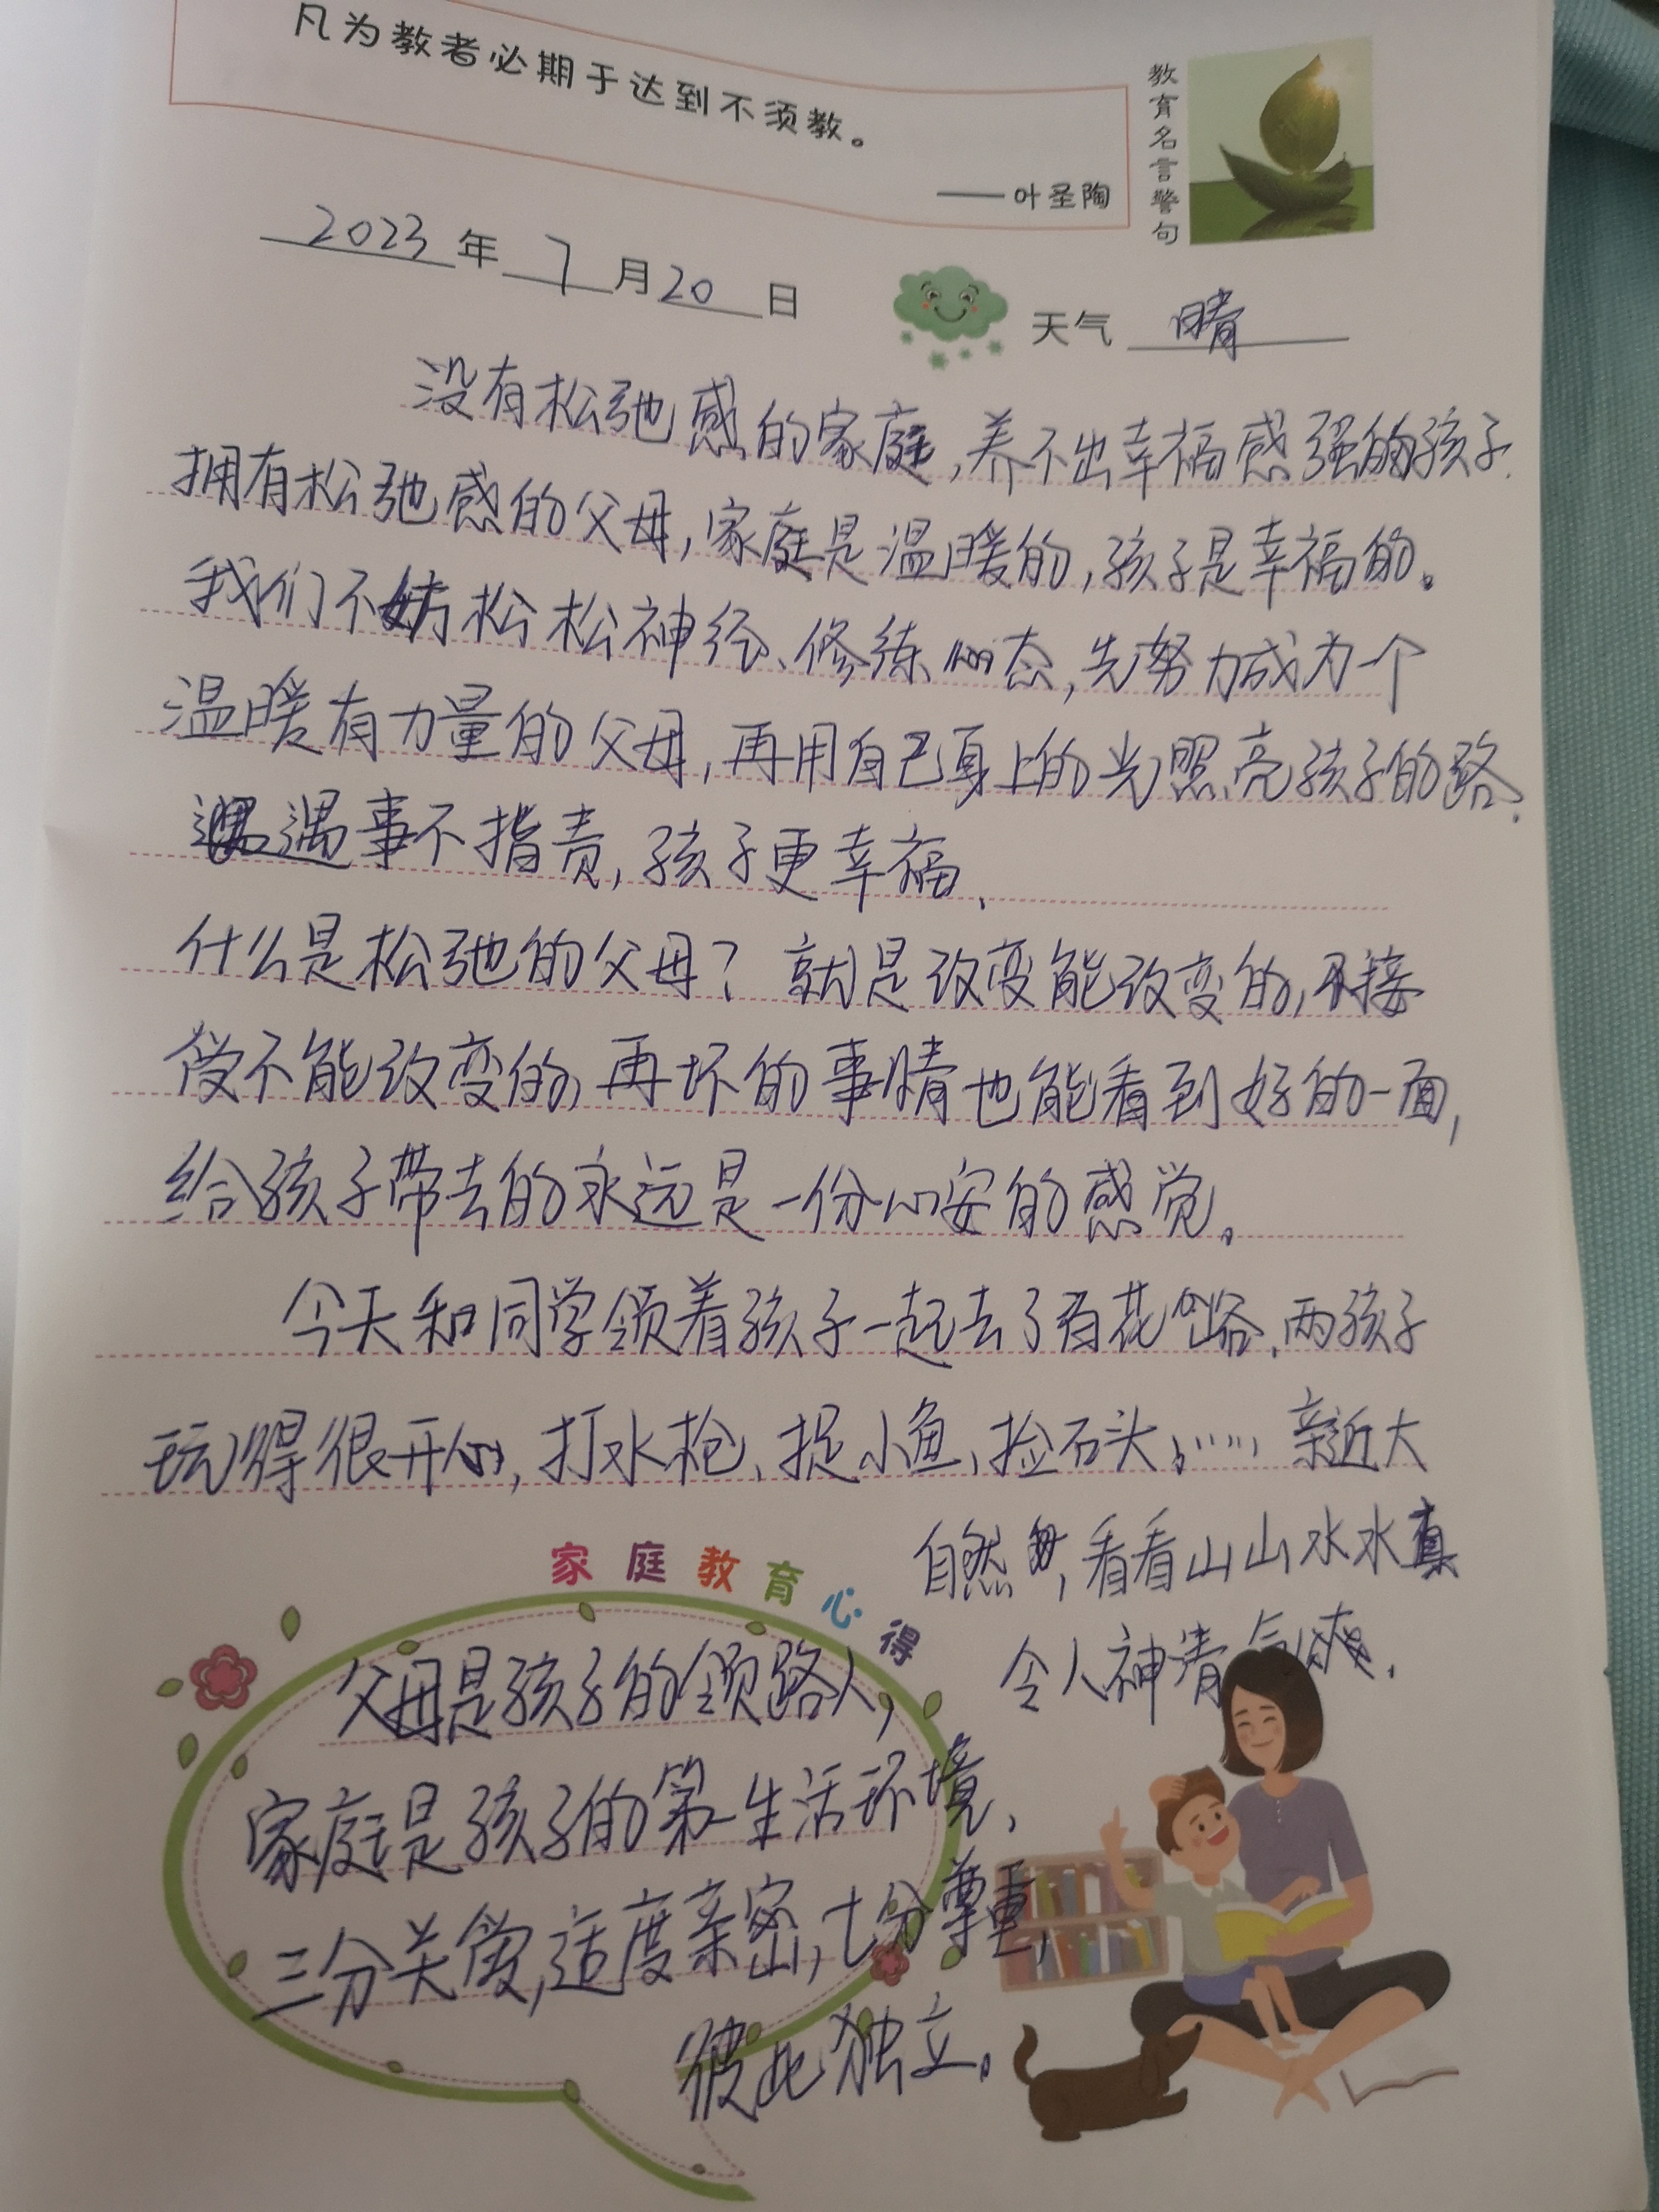 凡为教者必期于达到不须教。
——叶圣陶
教育名言警句
2023年7月20日
天气 晴
没有松弛感的家庭,养不出幸福感强的孩子.
拥有松弛感的父母,家庭是温暖的,孩子是幸福的。
我们不妨松松神经、修练心态,先努力成为一个
温暖有力量的父母,再用自己身上的光照亮孩子的路.
遇事不指责,孩子更幸福、
什么是松弛的父母?就是改变能改变的,接
受不能改变的,再坏的事情也能看到好的一面,
给孩子带去的永远是一份心安的感觉。
今天和同学领着孩子一起去了百花峪.两孩子
玩得很开心,打水枪、捉小鱼、捡石头……亲近大
自然,看看山山水水真
令人神清气爽.
家庭教育心得
父母是孩子的领路人,
家庭是孩子的第一生活环境、
三分关爱,适度亲密,七分尊重,
彼此独立。